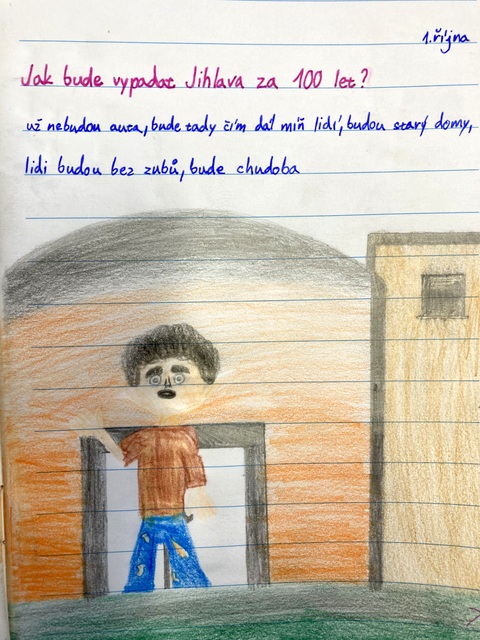 1. října
Jak bude vypadat Jihlava za 100 let?
už nebudou auta, bude tady čím dál míň lidí, budou starý domy,
lidi budou bez zubů, bude chudoba